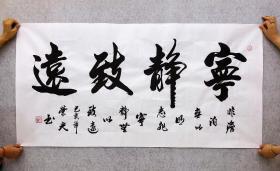 寧靜致遠
非澹
泊
無以
明
志非
寧
靜無
以
致遠
己亥年
书